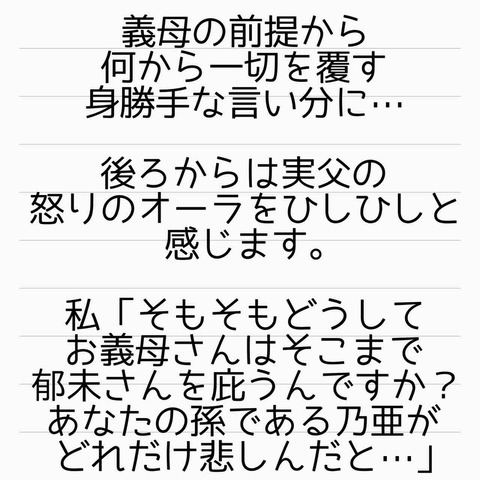 義母の前提から
何から一切を覆す
身勝手な言い分に…
後ろからは実父の
怒りのオーラをひしひしと
感じます。
私「そもそもどうして
お義母さんはそこまで
郁未さんを庇うんですか？
あなたの孫である乃亜が
どれだけ悲しんだと…」